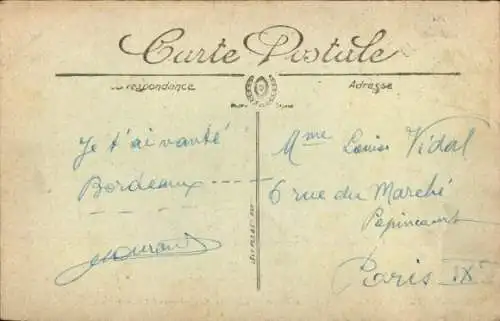 Carte Postale
Correspondance
Adresse
Je t'ai vanté
Bordeaux
Mme Louise Vidal
6 rue du Marché
Popincourt
Paris IX